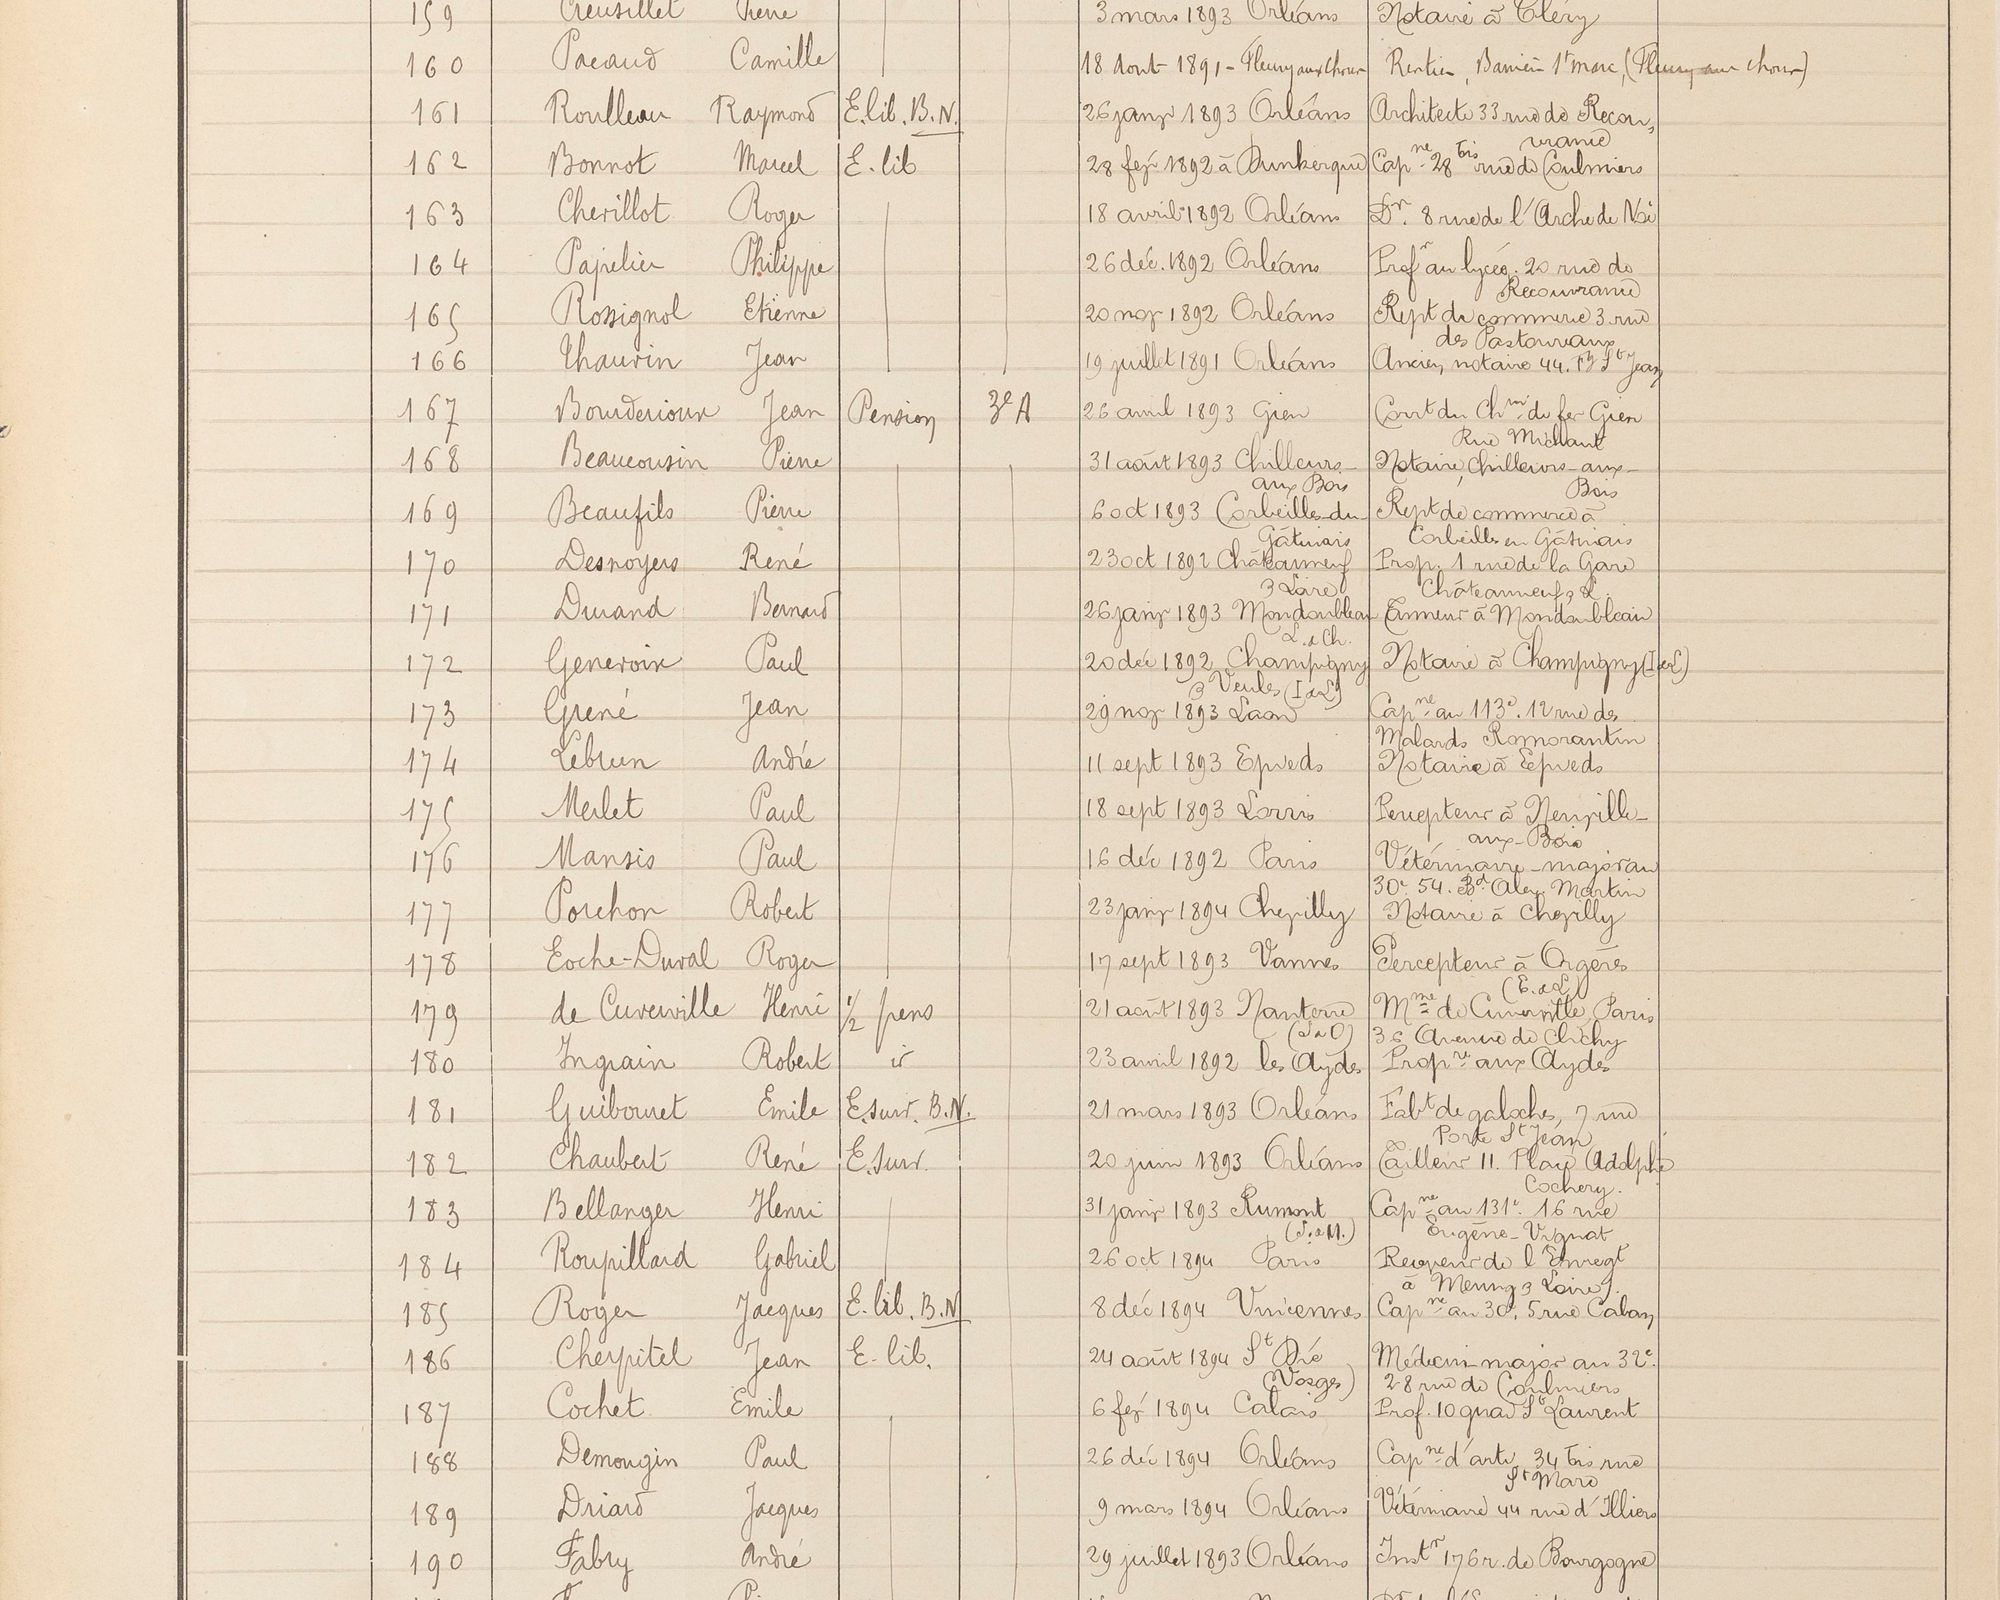 159 Creusillet Pierre 3 mars 1893 Orléans Notaire à Cléry
160 Pacaud Camille 18 Aout 1891 - Fleury aux Choux Rentier, Barrière St Marc, (Fleury aux Choux)
161 Roulleau Raymond E. lib. B.N. 26 janv 1893 Orléans Architecte 33 rue de Recou-
vrance
162 Bonnot Marcel E. lib 28 fév 1892 à Dunkerque Capne 28 bis rue de Coulmiers
163 Cherillot Roger 18 avril 1892 Orléans Dr. 8 rue de l'Arche de Noé
164 Papelier Philippe 26 déc. 1892 Orléans Profr au lycée. 20 rue de
Recouvrance
165 Rossignol Etienne 20 nov 1892 Orléans Rept de commerce 3 rue
des Pastoureaux
166 Thauvin Jean 19 juillet 1891 Orléans Ancien notaire 44. fg St Jean
167 Bourderioux Jean Pension 3e A 26 avril 1893 Gien Cont du Chin de fer Gien
Rue Michaut
168 Beaucousin Pierre 31 août 1893 Chilleurs- Notaire, Chilleurs-aux-
aux Bois Bois
169 Beaufils Pierre 6 oct 1893 Corbeilles-du- Rept de commerce à
Gâtinais Corbeilles en Gâtinais
170 Desnoyers René 23 oct 1892 Châteauneuf Prop. 1 rue de la Gare
s Loire Châteauneuf s L.
171 Durand Bernard 26 janv 1893 Mondoubleau Tanneur à Mondoubleau
L. & Ch.
172 Genevoix Paul 20 déc 1892 Champigny Notaire à Champigny (I et L)
s Veules (I & L)
173 Grené Jean 29 nov 1893 Laon Capne au 113e. 12 rue des
Malards Romorantin
174 Lebrun André 11 sept 1893 Epieds Notaire à Epieds
175 Merlet Paul 18 sept 1893 Lorris Percepteur à Neuville-
aux-Bois
176 Mansis Paul 16 déc 1892 Paris Vétérinaire-major au
30e. 54. Bd Alex. Martin
177 Porchon Robert 23 janv 1894 Chevilly Notaire à Chevilly
178 Toche-Duval Roger 17 sept 1893 Vannes Percepteur à Orgères
(E. & L)
179 de Cuverville Henri 1/2 pens 21 août 1893 Nanterre Mme de Cuverville Paris
(S & O) 36 Avenue de Clichy
180 Ingrain Robert id 23 avril 1892 les Aydes Propre aux Aydes
181 Guibouret Emile E. surv. B.N. 21 mars 1893 Orléans Fabt de galoches, 7 rue
Porte St Jean
182 Chaubert René E. surv. 20 juin 1893 Orléans Tailleur 11. Place Adolphe
Cochery.
183 Bellanger Henri 31 janv 1893 Rumont Capne au 131e. 16 rue
(S. & M.) Eugène-Vignat
184 Roupillard Gabriel 26 oct 1894 Paris Receveur de l'Enregt
à Meung s Loire
185 Roger Jacques E. lib. B.N. 8 déc 1894 Vincennes Capne au 30e. 5 rue Caban
186 Cherpitel Jean E. lib. 24 août 1894 St Dié Médecin-major au 32e.
(Vosges) 28 rue de Coulmiers
187 Cochet Emile 6 fév 1894 Calais Prof. 10 quai St Laurent
188 Demougin Paul 26 déc 1894 Orléans Capne d'arti 34 bis rue
St Marc
189 Driard Jacques 9 mars 1894 Orléans Vétérinaire 44 rue d'Illiers
190 Fabry André 29 juillet 1893 Orléans Instr 176 r. de Bourgogne